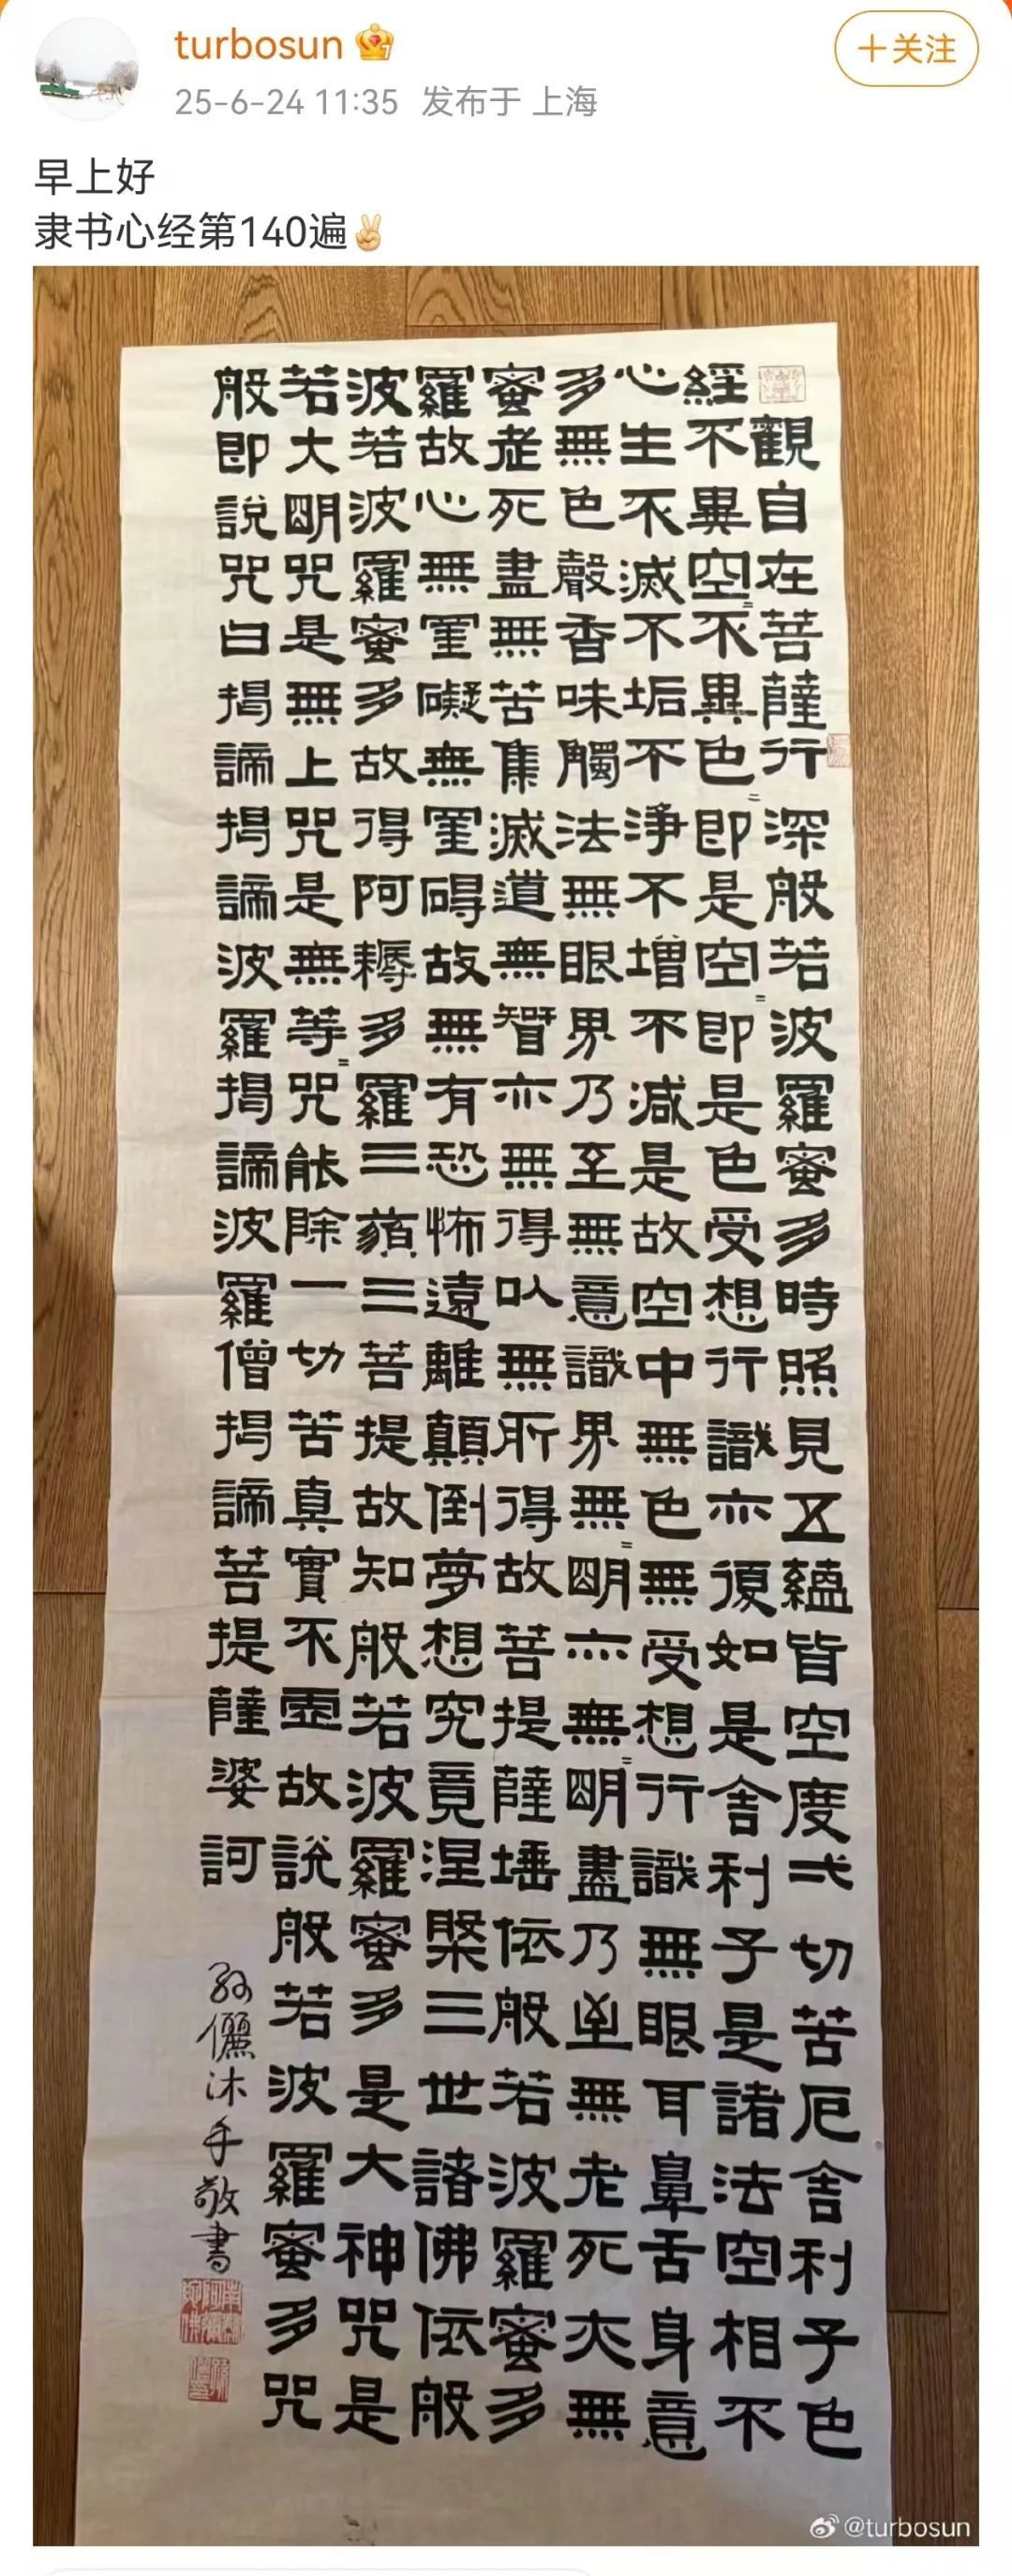 turbosun
+关注
25-6-24 11:35 发布于 上海
早上好
隶书心经第140遍✌
般若波羅蜜多心經
觀自在菩薩行深般若波羅蜜多時照見五蘊皆空度弌切苦厄舍利子色
不異空〻不異色〻即是空〻即是色受想行識亦復如是舍利子是諸法空相不
生不滅不垢不淨不增不減是故空中無色無受想行識無眼耳鼻舌身意
無色聲香味觸法無眼界乃至無意識界無〻明亦無〻明盡乃至無老死亦無
老死盡無苦集滅道無智亦無得以無所得故菩提薩埵依般若波羅蜜多
故心無罣礙無罣碍故無有恐怖遠離顛倒夢想究竟涅槃三世諸佛依般
若波羅蜜多故得阿耨多羅三藐三菩提故知般若波羅蜜多是大神咒是
大明咒是無上咒是無等〻咒能除一切苦真實不虛故說般若波羅蜜多咒
即說咒曰揭諦揭諦波羅揭諦波羅僧揭諦菩提薩婆訶
孫儷沐手敬書
@turbosun